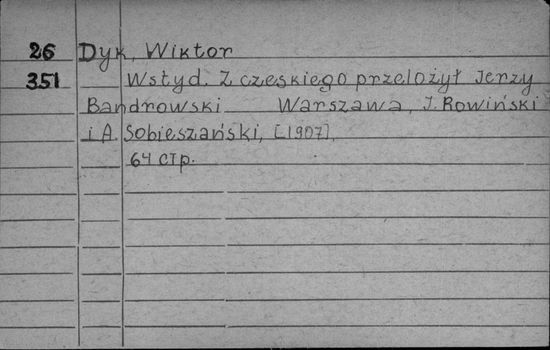 26 Dyk, Wiktor
351 Wstyd. Z czeskiego przełożył Jerzy
Bandrowski Warszawa, J. Rowiński
i A. Sobieszański, [1907].
64 стр.